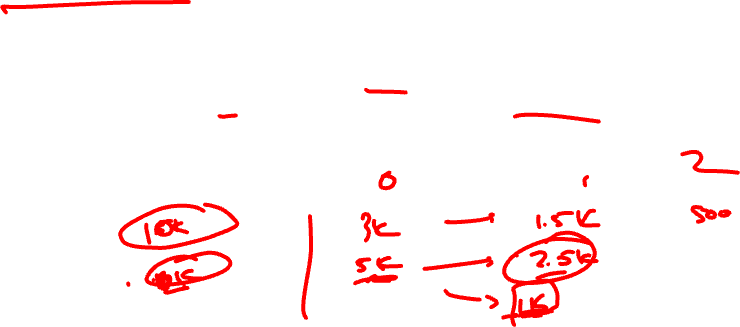 0 1 2
10K 3K → 1.5K 500
5K → 2.5K
→ 1K